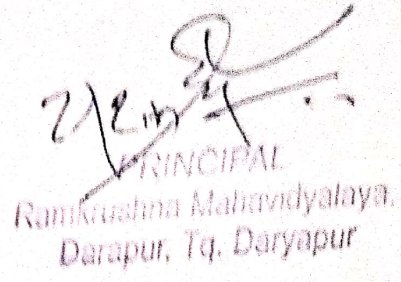 PRINCIPAL
Ramkrushna Mahavidyalaya,
Darapur, Tq. Daryapur